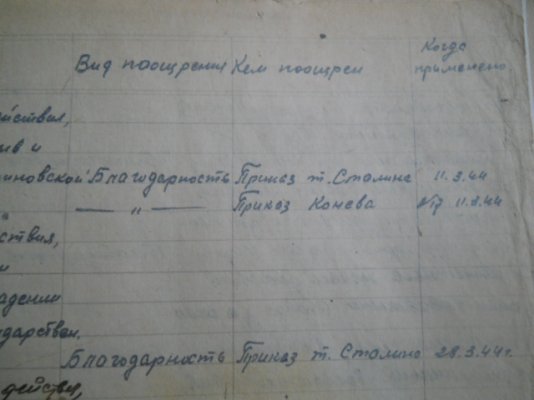 Вид поощрения Кем поощрен Когда
применено.
ействия,
ив и
иновской Благодарность Приказ т. Сталина 11.3.44
— " — Приказ Конева 11.3.44
на
ствия,
и
адении
ударствен.
Благодарность Приказ т. Сталина 28.3.44г.
действия,